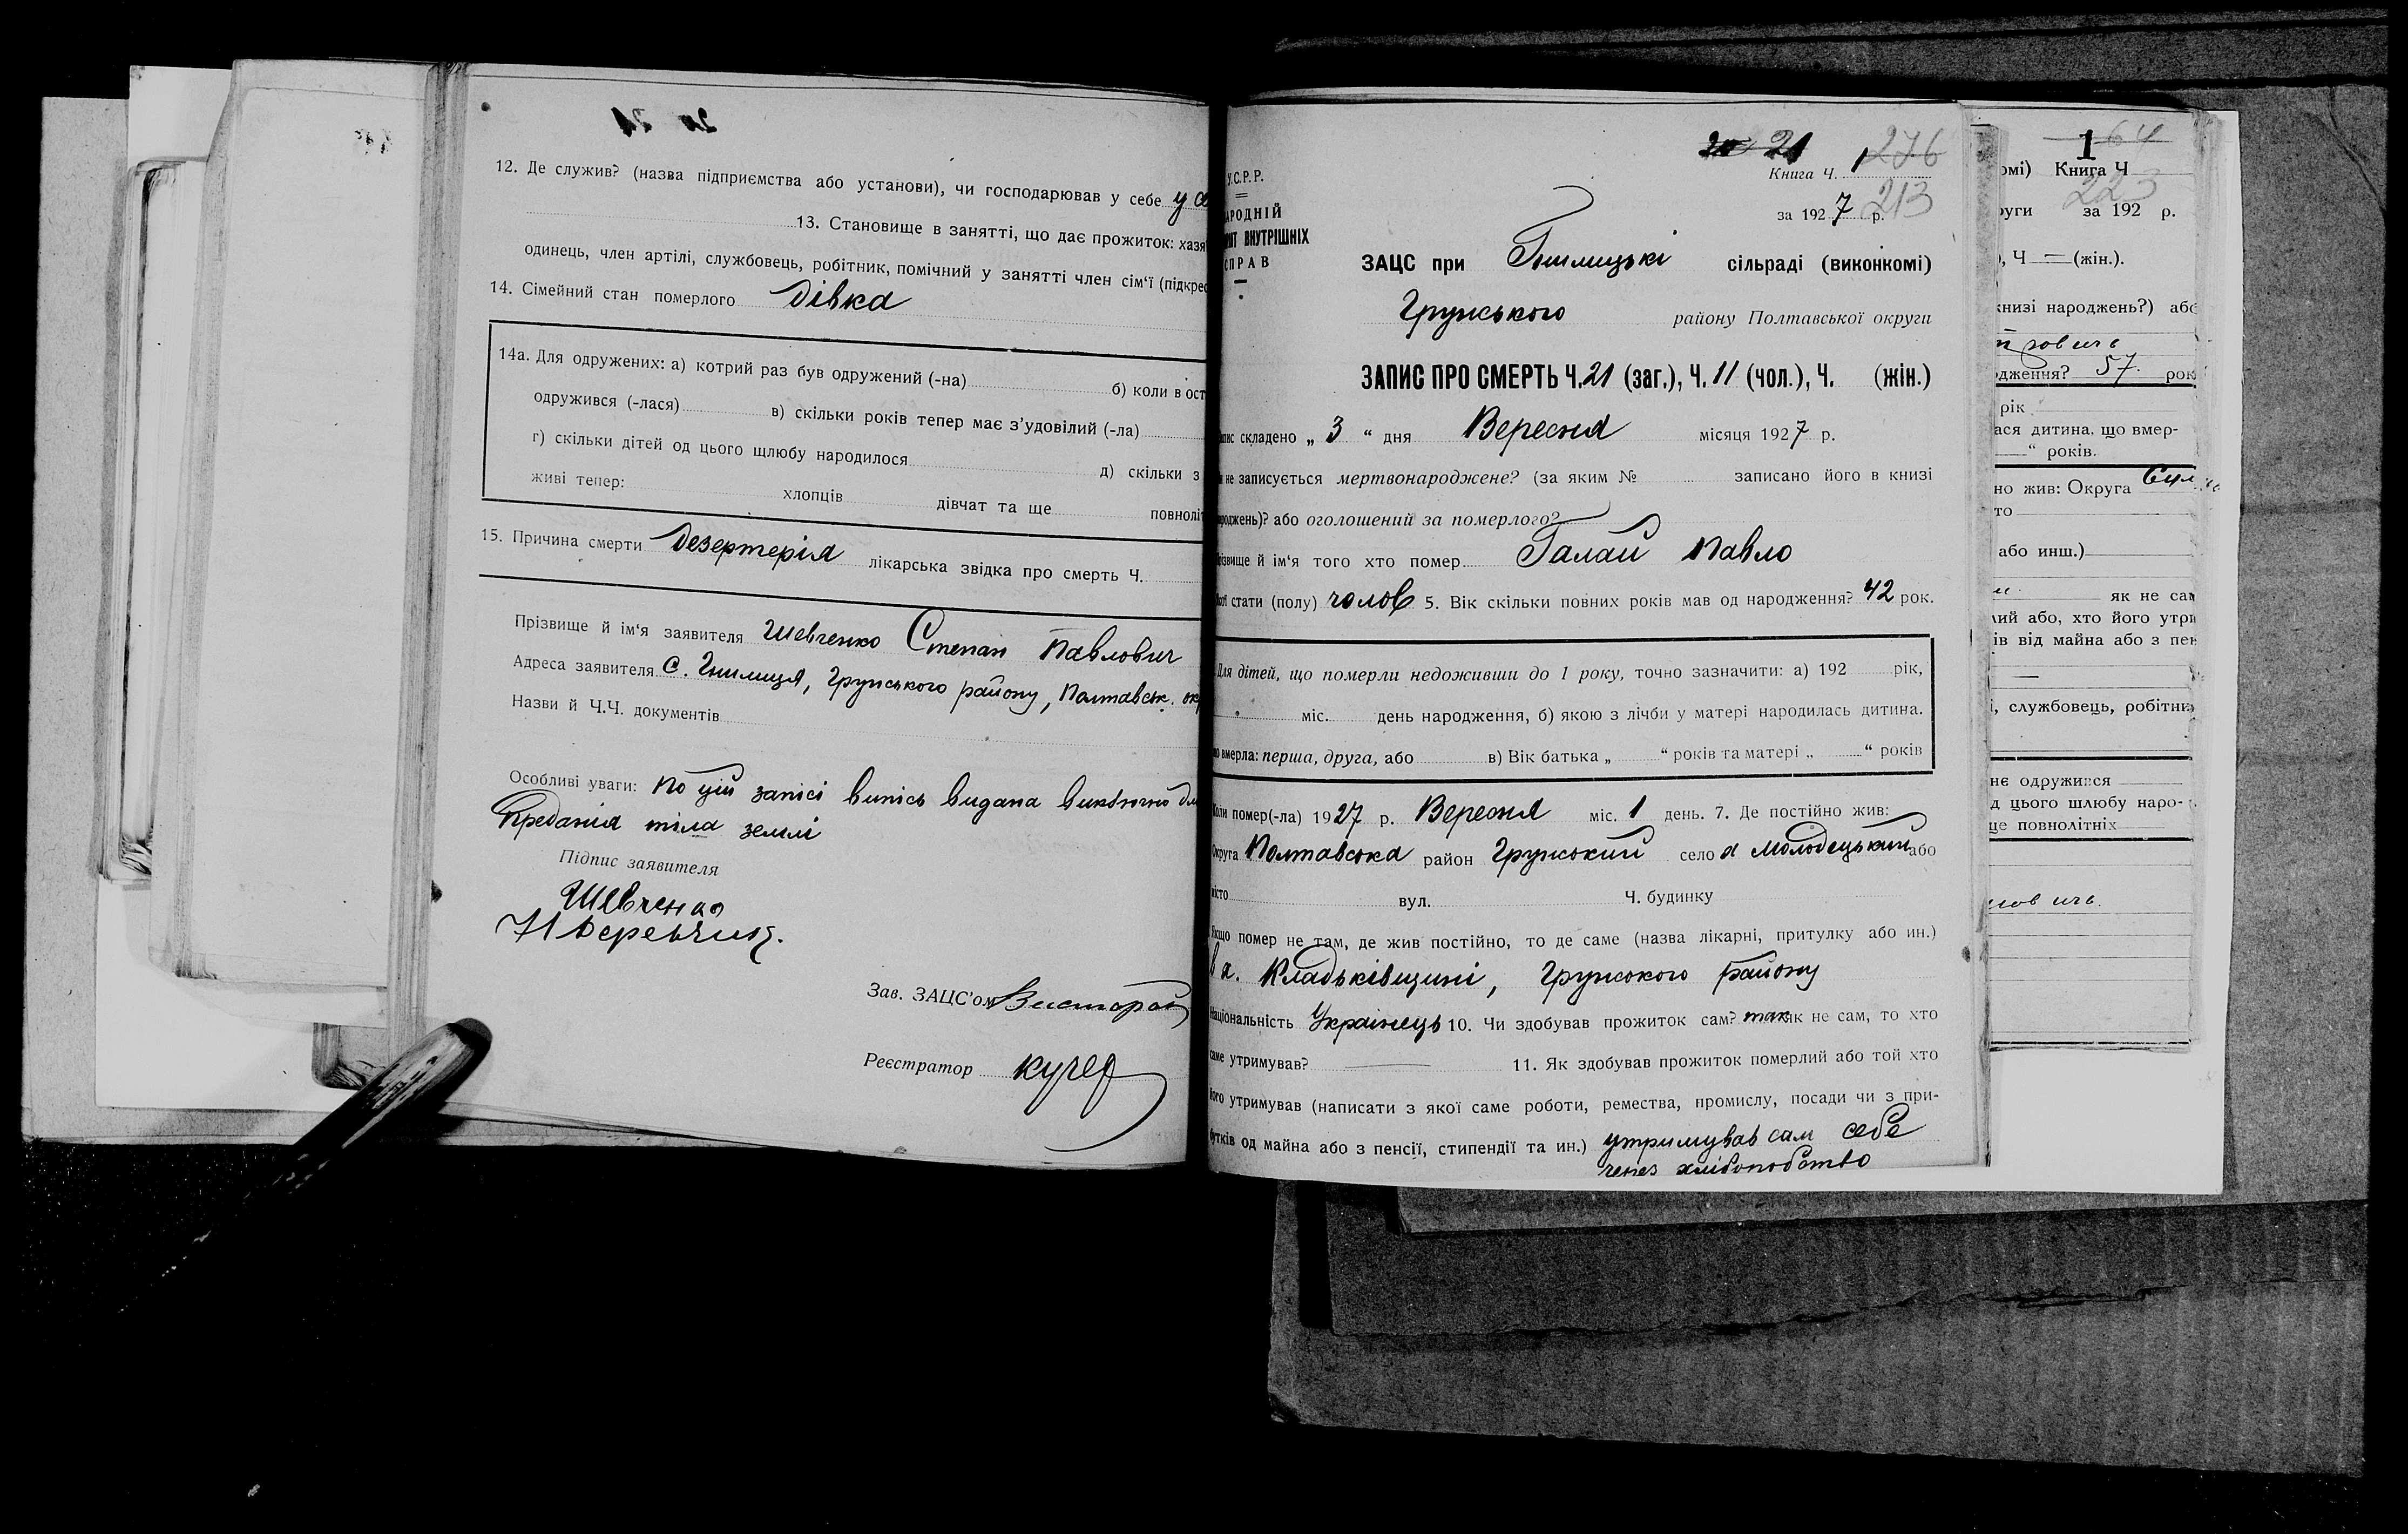 12. Де служив? (назва підприємства або установи), чи господарював у себе у
13. Становище в занятті, що дає прожиток: хазя
одинець, член артілі, службовець, робітник, помічний у занятті член сім'ї (підкрес
14. Сімейний стан померлого дівка
14а. Для одружених: а) котрий раз був одружений (-на) б) коли в ост
одружився (-лася) в) скільки років тепер має з'удовілий (-ла)
г) скільки дітей од цього щлюбу народилося д) скільки з
живі тепер: хлопців дівчат та ще повноліт
15. Причина смерти Дезертерія лікарська звідка про смерть Ч.
Прізвище й ім'я заявителя Шевченко Степан Павлович
Адреса заявителя С. Гнилиця, Грунського району, Полтавськ. ок
Назви й Ч.Ч. документів
Особливі уваги: По цій запісі випісь видана виключно для
Предання тіла землі
Підпис заявителя
Шевченко
Зав. ЗАЦС'ом
Реєстратор Кучер
20 21 1 276
Книга Ч.
за 1927 р. 213
У.С.Р.Р.
АРОДНІЙ
РІЯТ ВНУТРІШНІХ
СПРАВ
ЗАЦС при Гнилицькі сільраді (виконкомі)
Грунського району Полтавської округи
ЗАПИС ПРО СМЕРТЬ Ч. 21 (заг.), Ч. 11 (чол.), Ч. (жін.)
апис складено „ 3 “ дня Вересня місяця 1927 р.
и не записується мертвонароджене? (за яким № записано його в книзі
ароджень)? або оголошений за померлого?
різвище й ім'я того хто помер Галай Павло
якої стати (полу) чолов 5. Вік скільки повних років мав од народження? 42 рок.
Для дітей, що померли недоживши до 1 року, точно зазначити: а) 192 рік,
міс. день народження, б) якою з лічби у матері народилась дитина.
що вмерла: перша, друга, або в) Вік батька „ “ років та матері „ “ років
Коли помер(-ла) 1927 р. Вересня міс. 1 день. 7. Де постійно жив:
Округа Полтавська район Грунський село х Молодецький або
місто вул. Ч. будинку
Якщо помер не там, де жив постійно, то де саме (назва лікарні, притулку або ин.)
в х. Кладьківщині, Грунського району
Національність Українець 10. Чи здобував прожиток сам? так як не сам, то хто
саме утримував? 11. Як здобував прожиток померлий або той хто
його утримував (написати з якої саме роботи, ремества, промислу, посади чи з при-
бутків од майна або з пенсії, стипендії та ин.) утримував сам себе
через хлібопобство
1 64
омі) Книга Ч
223
руги за 192 р.
), Ч — (жін.).
книзі народжень?) або
одження? 57 рок
рік
ася дитина, що вмер-
“ років.
но жив: Округа
то
або инш.)
як не сам
лий або, хто його утри
ів від майна або з пен
і, службовець, робітник
нє одружився
д цього шлюбу наро-
ще повнолітніх